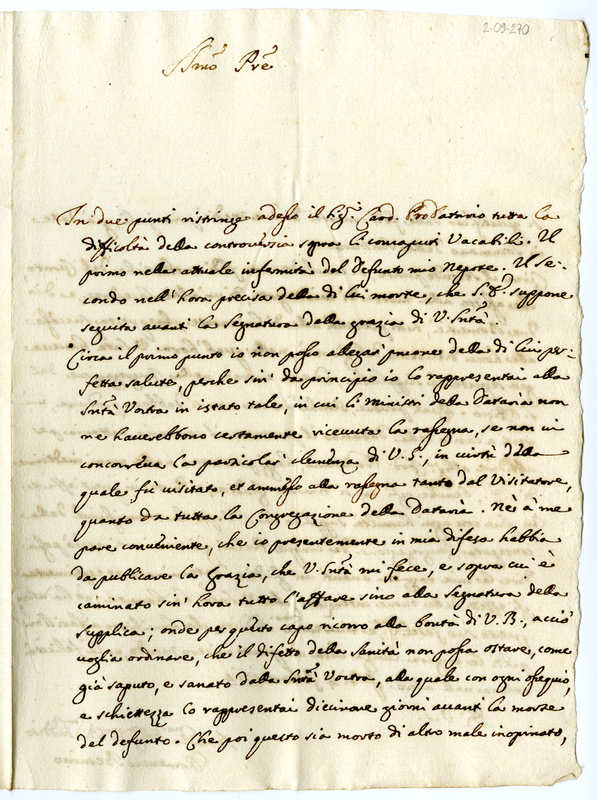 2-09-270
Bmo Pre
In due punti ristringe adesso il Sigr. Card. ProDatario tutta la
difficoltà della controversia sopra li consaputi Vacabili. Il
primo nella attuale infermità del defunto mio Nepote. Il se-
condo nell'hora precisa della di lui morte, che S. E. suppone
seguita avanti la Segnatura della grazia di V. Sntà.
Circa il primo punto io non posso allegar' pruove della di lui per-
fetta salute, perche sin' da principio io lo rappresentai alla
Sntà Vostra in istato tale, in cui li Ministri della Dataria non
ne haverebbono certamente ricevuta la rassegna, se non vi
concorreva la particolar' clemenza di V. S., in virtù della
quale fù visitato, et ammesso alla rassegna tanto dal Visitatore,
quanto da tutta la Congregazione della Dataria. Nè à me
pare conveniente, che io presentemente in mia difesa habbia
da publicare la grazia, che V. Sntà mi fece, e sopra cui è
caminato sin' hora tutto l'affare sino alla Segnatura della
supplica; onde per questo capo ricorro alla bontà di V. B., acciò
voglia ordinare, che il difetto della Sanità non possa ostare, come
già saputo, e sanato dalla Sntà Vostra, alla quale con ogni ossequio,
e schiettezza lo rappresentai diecinove giorni avanti la morte
del defunto. Che poi questo sia morto di altro male inopinato,